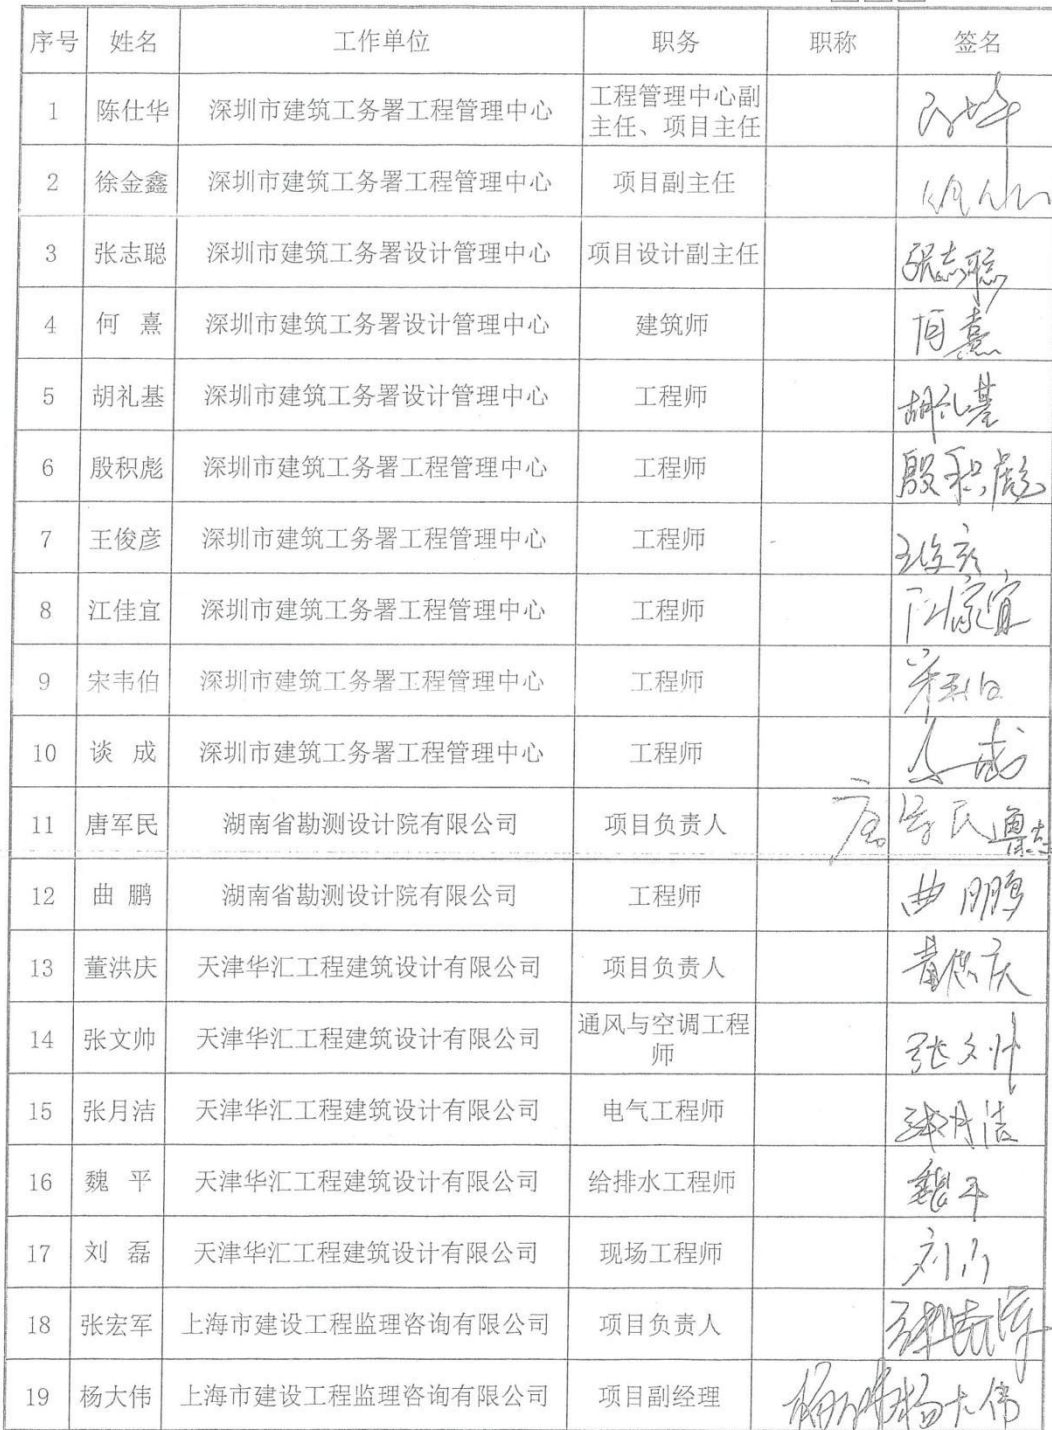 序号 姓名 工作单位 职务 职称 签名
1 陈仕华 深圳市建筑工务署工程管理中心 工程管理中心副
主任、项目主任
2 徐金鑫 深圳市建筑工务署工程管理中心 项目副主任
3 张志聪 深圳市建筑工务署设计管理中心 项目设计副主任 张志聪
4 何 熹 深圳市建筑工务署设计管理中心 建筑师 何熹
5 胡礼基 深圳市建筑工务署设计管理中心 工程师 胡礼基
6 殷积彪 深圳市建筑工务署工程管理中心 工程师 殷积彪
7 王俊彦 深圳市建筑工务署工程管理中心 工程师 王俊彦
8 江佳宜 深圳市建筑工务署工程管理中心 工程师
9 宋韦伯 深圳市建筑工务署工程管理中心 工程师
10 谈 成 深圳市建筑工务署工程管理中心 工程师
11 唐军民 湖南省勘测设计院有限公司 项目负责人 唐军民
12 曲 鹏 湖南省勘测设计院有限公司 工程师 曲鹏
13 董洪庆 天津华汇工程建筑设计有限公司 项目负责人 董洪庆
14 张文帅 天津华汇工程建筑设计有限公司 通风与空调工程
师 张文帅
15 张月洁 天津华汇工程建筑设计有限公司 电气工程师 张月洁
16 魏 平 天津华汇工程建筑设计有限公司 给排水工程师 魏平
17 刘 磊 天津华汇工程建筑设计有限公司 现场工程师 刘磊
18 张宏军 上海市建设工程监理咨询有限公司 项目负责人
19 杨大伟 上海市建设工程监理咨询有限公司 项目副经理 杨大伟